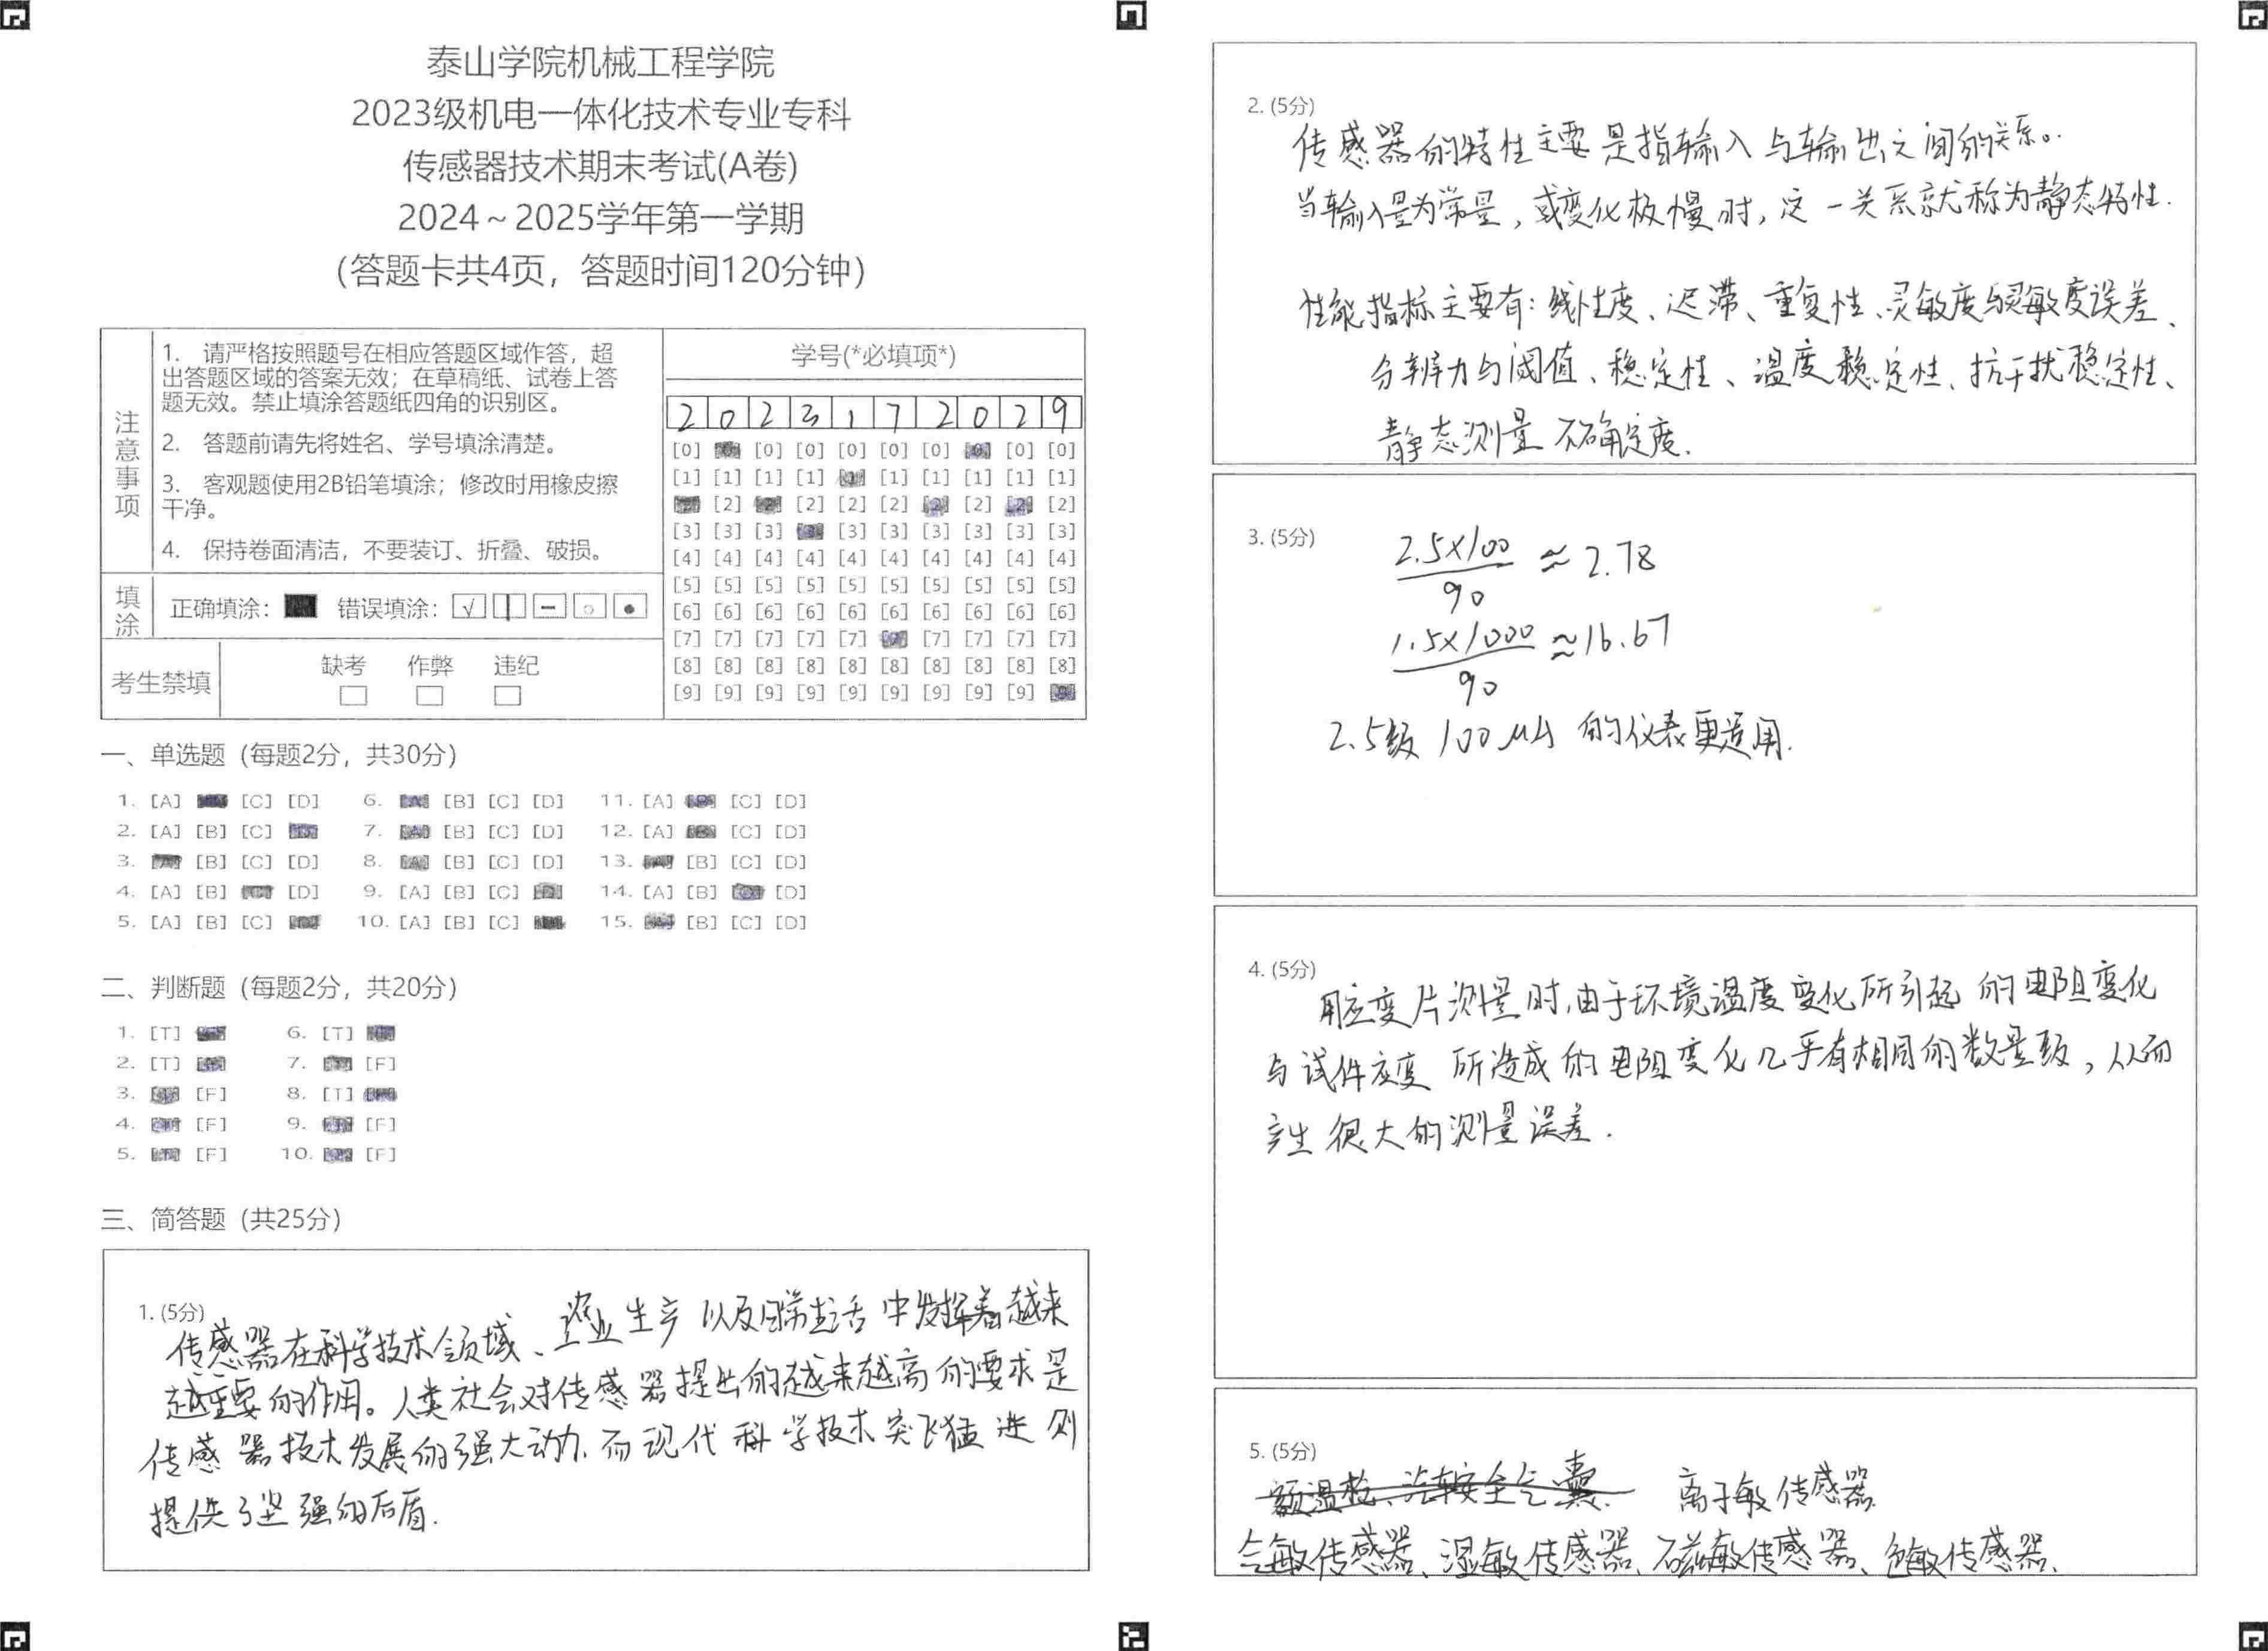 泰山学院机械工程学院
2023级机电一体化技术专业专科
传感器技术期末考试(A卷)
2024～2025学年第一学期
（答题卡共4页，答题时间120分钟）
注意事项
1. 请严格按照题号在相应答题区域作答，超
出答题区域的答案无效；在草稿纸、试卷上答
题无效。禁止填涂答题纸四角的识别区。
2. 答题前请先将姓名、学号填涂清楚。
3. 客观题使用2B铅笔填涂；修改时用橡皮擦
干净。
4. 保持卷面清洁，不要装订、折叠、破损。
填涂
正确填涂： 错误填涂：
考生禁填
缺考 作弊 违纪
学号(*必填项*)
2 0 2 3 1 7 2 0 2 9
[0] [0] [0] [0] [0] [0] [0] [0]
[1] [1] [1] [1] [1] [1] [1] [1] [1]
[2] [2] [2] [2] [2] [2]
[3] [3] [3] [3] [3] [3] [3] [3] [3]
[4] [4] [4] [4] [4] [4] [4] [4] [4] [4]
[5] [5] [5] [5] [5] [5] [5] [5] [5] [5]
[6] [6] [6] [6] [6] [6] [6] [6] [6] [6]
[7] [7] [7] [7] [7] [7] [7] [7] [7]
[8] [8] [8] [8] [8] [8] [8] [8] [8] [8]
[9] [9] [9] [9] [9] [9] [9] [9] [9]
一、单选题（每题2分，共30分）
1. [A] [C] [D] 6. [B] [C] [D] 11. [A] [C] [D]
2. [A] [B] [C] 7. [B] [C] [D] 12. [A] [C] [D]
3. [B] [C] [D] 8. [B] [C] [D] 13. [B] [C] [D]
4. [A] [B] [D] 9. [A] [B] [C] 14. [A] [B] [D]
5. [A] [B] [C] 10. [A] [B] [C] 15. [B] [C] [D]
二、判断题（每题2分，共20分）
1. [T] 6. [T]
2. [T] 7. [F]
3. [F] 8. [T]
4. [F] 9. [F]
5. [F] 10. [F]
三、简答题（共25分）
1. (5分)
传感器在科学技术领域、工业生产以及日常生活中发挥着越来
越重要的作用。人类社会对传感器提出的越来越高的要求是
传感器技术发展的强大动力.而现代科学技术突飞猛进则
提供了坚强的后盾.
2. (5分)
传感器的特性主要是指输入与输出之间的关系。
当输入量为常量，或变化极慢时，这一关系就称为静态特性.
性能指标主要有：线性度、迟滞、重复性、灵敏度与灵敏度误差、
分辨力与阈值、稳定性、温度稳定性、抗干扰稳定性、
静态测量不确定度.
3. (5分)
2.5×100/90 ≈2.78
1.5×1000/90 ≈16.67
2.5级 100μA 的仪表更适用.
4. (5分)
用应变片测量时,由于环境温度变化所引起的电阻变化
与试件应变所造成的电阻变化几乎有相同的数量级，从而
产生很大的测量误差.
5. (5分)
额温枪、汽车安全气囊. 离子敏传感器
气敏传感器、湿敏传感器、磁敏传感器、色敏传感器.